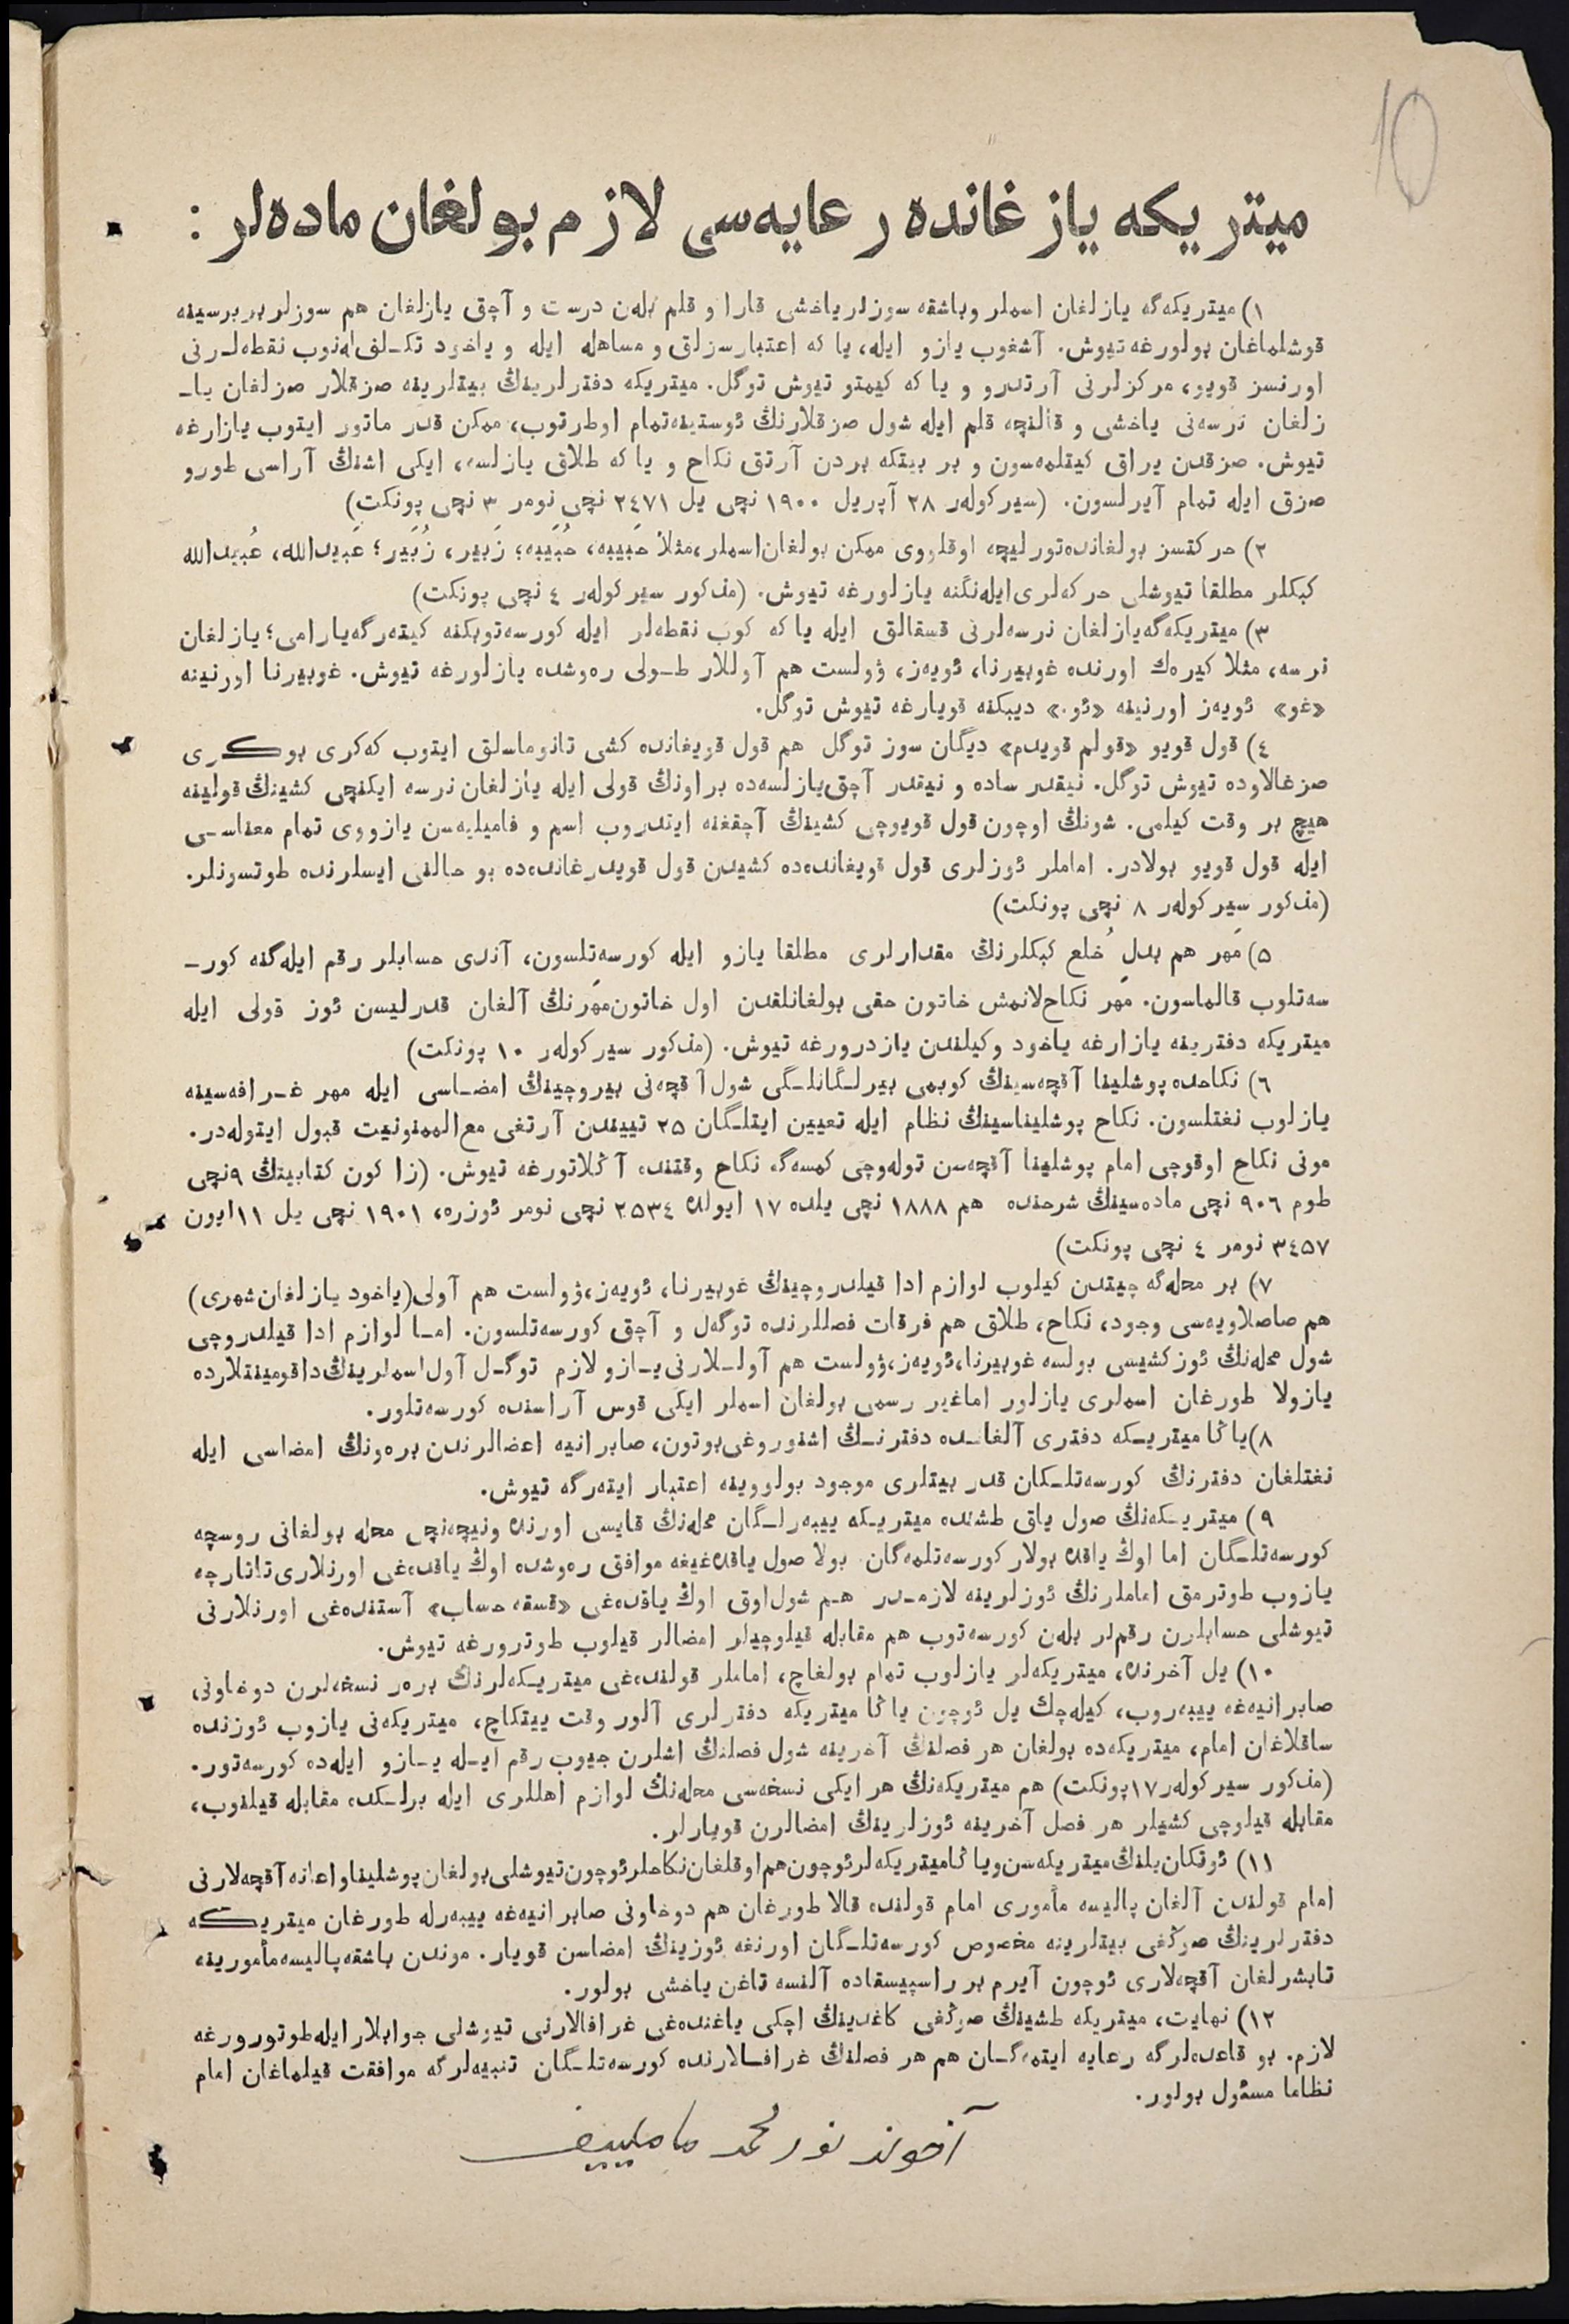 10
ميتريكه يازغانده رعايه‌سى لازم بولغان ماده‌لر :
١) ميتريكه‌گه يازلغان اسملر وباشقه سوزلر ياخشى قارا و قلم بله‌ن درست و آچق يازلغان هم سوزلر بر برسينه
قوشلماغان بولورغه تيوش. آشغوب يازو ايله، يا كه اعتبارسزلق و مساهله ايله و ياخود تكـلف له‌نوب نقطه‌لـرنى
اورنسز قويو، مركزلرنى آرتدرو و يا كه كيمتو تيوش توگل. ميتريكه دفترلرينڭ بيتلرينه صزقلار صزلغان يا-
زلغان نرسه‌نى ياخشى و قالنچه قلم ايله شول صزقلارنڭ ئوستينه تمام اوطرتوب، ممكن قدر ماتور ايتوب يازارغه
تيوش. صزقدن يراق كيتلمه‌سون و بر بيتكه بردن آرتق نكاح و يا كه طلاق يازلسه، ايكى اشنڭ آراسى طورو
صزق ايله تمام آيرلسون. (سيركوله‌ر ٢٨ آپريل ١٩٠٠ نچى يل ٢٤٧١ نچى نومر ٣ نچى پونكت)
٢) حركتسز بولغانده تورليچه اوقلووى ممكن بولغان اسملر، مثلا حَبيبه، حُبَيبه؛ زَبير، زُبَير؛ عَبيدالله، عُبيدالله
كبكلر مطلقا تيوشلى حركه‌لرى ايله‌نگنه يازلورغه تيوش. (مذكور سيركوله‌ر ٤ نچى پونكت)
٣) ميتريكه‌گه يازلغان نرسه‌لرنى قسقالق ايله يا كه كوب نقطه‌لر ايله كورسه‌توبكنه كيته‌رگه يارامى؛ يازلغان
نرسه، مثلا كيره‌ك اورنده غوبيرنا، ئويه‌ز، ۋولست هم آوللار طـولى ره‌وشده يازلورغه تيوش. غوبيرنا اورنينه
«غو» ئويه‌ز اورنينه «ئو.» ديبكنه قويارغه تيوش توگل.
٤) قول قويو «قولم قويدم» ديگان سوز توگل هم قول قويغانده كشى تانوماسلق ايتوب كه‌كرى بوكـرى
صزغالاوده تيوش توگل. نيقدر ساده و نيقدر آچق يازلسه‌ده براونڭ قولى ايله يازلغان نرسه ايكنچى كشينڭ قولينه
هيچ بر وقت كيلمى. شونڭ اوچون قول قويوچى كشينڭ آچقغنه ايتدروب اسم و فاميليه‌سن يازووى تمام معناسـى
ايله قول قويو بولادر. اماملر ئوزلرى قول قويغانده‌ده كشيدن قول قويدرغانده‌ده بو حالنى ايسلرنده طوتسونلر.
(مذكور سيركوله‌ر ٨ نچى پونكت)
٥) مَهر هم بدلِ خُلع كبكلرنڭ مقدارلرى مطلقا يازو ايله كورسه‌تلسون، آندى حسابلر رقم ايله‌گنه كور-
سه‌تلوب قالماسون. مَهر نكاح‌لانمش خاتون حقى بولغانلقدن اول خاتون مهرنڭ آلغان قدرليسن ئوز قولى ايله
ميتريكه دفترينه يازارغه ياخود وكيلندن يازدرورغه تيوش. (مذكور سيركوله‌ر ١٠ پونكت)
٦) نكاحده پوشلينا آقچه‌سينڭ كوبمى بيرلـگانلـگى شول آقچه‌نى بيروچينڭ امضـاسى ايله مهر غـرافه‌سينه
يازلوب نغتلسون. نكاح پوشليناسينڭ نظام ايله تعيين ايتلـگان ٢٥ تييندن آرتغى مع‌الممنونيت قبول ايتوله‌در.
مونى نكاح اوقوچى امام پوشلينا آقچه‌سن توله‌وچى كمسه‌گه نكاح وقتنده آڭلاتورغه تيوش. (زا كون كتابينڭ ٩نچى
طوم ٩٠٦ نچى ماده‌سينڭ شرحنده هم ١٨٨٨ نچى يلده ١٧ ايولده ٢٥٣٤ نچى نومر ئوزره، ١٩٠١ نچى يل ١١ايون
٣٤٥٧ نومر ٤ نچى پونكت)
٧) بر محله‌گه چيتدن كيلوب لوازم ادا قيلدروچينڭ غوبيرنا، ئويه‌ز، ۋولست هم آولى (ياخود يازلغان شهرى)
هم صاصلاويه‌سى وجود، نكاح، طلاق هم فرقات فصللرنده توگه‌ل و آچق كورسه‌تلسون. امـا لوازم ادا قيلدروچى
شول محله‌نڭ ئوز كشيسى بولسه غوبيرنا، ئويه‌ز، ۋولست هم آولـلارنى يـازو لازم توگـل آول اسملرينڭ داقومينتلارده
يازولا طورغان اسملرى يازلور اماغير رسمى بولغان اسملر ايكى قوس آراسنده كورسه‌تلور.
٨) ياڭا ميتريـكه دفترى آلغانـده دفترنـڭ اشنوروغى بوتون، صابرانيه اعضالرندن بره‌ونڭ امضاسى ايله
نغتلغان دفترنڭ كورسه‌تلـكان قدر بيتلرى موجود بولووينه اعتبار ايته‌رگه تيوش.
٩) ميتريـكه‌نڭ صول ياق طشنده ميتريـكه ييبه‌رلـگان محله‌نڭ قايسى اورنده ونيچه‌نچى محله بولغانى روسچه
كورسه‌تلـگان اما اوڭ ياقده بولار كورسه‌تلمه‌گان. بولا صول ياقده‌غيغه موافق ره‌وشده اوڭ ياقده‌غى اورنلارى تاتارچه
يازوب طوترمق اماملرنڭ ئوزلرينه لازمـدر هـم شول‌اوق اوڭ ياقده‌غى «قسقه حساب» آستنده‌غى اورنلارنى
تيوشلى حسابلرن رقم‌لر بله‌ن كورسه‌توب هم مقابله قيلوچيلر امضالر قيلوب طوترورغه تيوش.
١٠) يل آخرنده، ميتريكه‌لر يازلوب تمام بولغاچ، اماملر قولنده‌غى ميتريـكه‌لرنڭ بره‌ر نسخه‌لرن دوخاونى
صابرانيه‌غه ييبه‌روب، كيله‌چك يل ئوچون ياڭا ميتريكه دفترلرى آلور وقت ييتكاچ، ميتريكه‌نى يازوب ئوزنده
ساقلاغان امام، ميتريكه‌ده بولغان هر فصلنڭ آخرينه شول فصلنڭ اشلرن جيوب رقم ايـله يـازو ايله‌ده كورسه‌تور.
(مذكور سيركوله‌ر ١٧پونكت) هم ميتريكه‌نڭ هر ايكى نسخه‌سى محله‌نڭ لوازم اهللرى ايله برلـكده مقابله قيلنوب،
مقابله قيلوچى كشيلر هر فصل آخرينه ئوزلرينڭ امضالرن قويارلر.
١١) ئوتكان يلنڭ ميتريكه‌سن وياڭا ميتريكه‌لر ئوچون هم اوقلغان نكاحلر ئوچون تيوشلى بولغان پوشلينا و اعانه آقچه‌لارنى
امام قولندن آلغان پاليسه مأمورى امام قولنده قالا طورغان هم دوخاونى صابرانيه‌غه ييبه‌رله طورغان ميتريـكه
دفترلرينڭ صوڭغى بيتلرينه مخصوص كورسه‌تلـگان اورنغه ئوزينڭ امضاسن قويار. موندن باشقه پاليسه مأمورينه
تابشرلغان آقچه‌لارى ئوچون آيرم بر راسپيسقاده آلنسه تاغن ياخشى بولور.
١٢) نهايت، ميتريكه طشينڭ صوڭغى كاغدينڭ اچكى ياغنده‌غى غرافالارنى تيوشلى جوابلار ايله طوتورورغه
لازم. بو قاعده‌لرگه رعايه ايتمه‌گـان هم هر فصلنڭ غرافـالارنده كورسه‌تلـگان تنبيه‌لرگه موافقت قيلماغان امام
نظاما مسئول بولور.
آخوند نورمحمد ماملييف